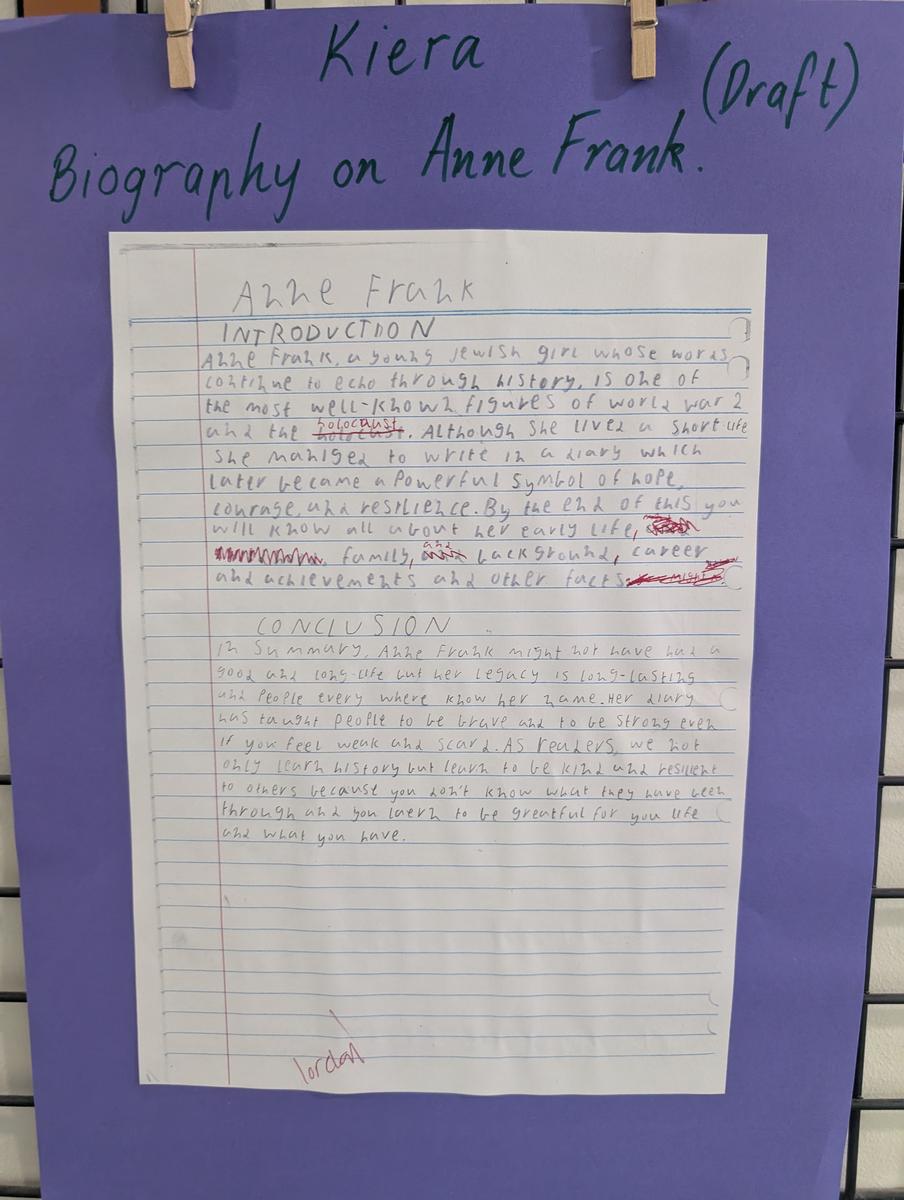 Kiera
(Draft)
Biography on Anne Frank.
Anne Frank
INTRODUCTION
Anne Frank, a young jewish girl whose words
continue to echo through history, is one of
the most well-known figures of world war 2
and the holocaust. Although she lived a short life
she maniged to write in a diary which
later became a powerful symbol of hope,
courage, and resilience. By the end of this you
will know all about her early life,
family, and background, career
and achievements and other facts
CONCLUSION
In summary, Anne Frank might not have had a
good and long-life but her legacy is long-lasting
and people every where know her name. Her diary
has taught people to be brave and to be strong even
if you feel weak and scard. As readers, we not
only learn history but learn to be kind and resilient
to others because you don't know what they have been
through and you laern to be greatful for you life
and what you have.